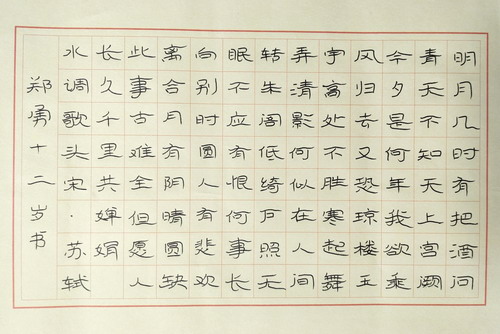 明月几时有把酒问
青天不知天上宫阙
今夕是何年我欲乘
风归去又恐琼楼玉
宇高处不胜寒起舞
弄清影何似在人间
转朱阁低绮户照无
眠不应有恨何事长
向别时圆人有悲欢
离合月有阴晴圆缺
此事古难全但愿人
长久千里共婵娟
水调歌头宋·苏轼
郑勇十二岁书